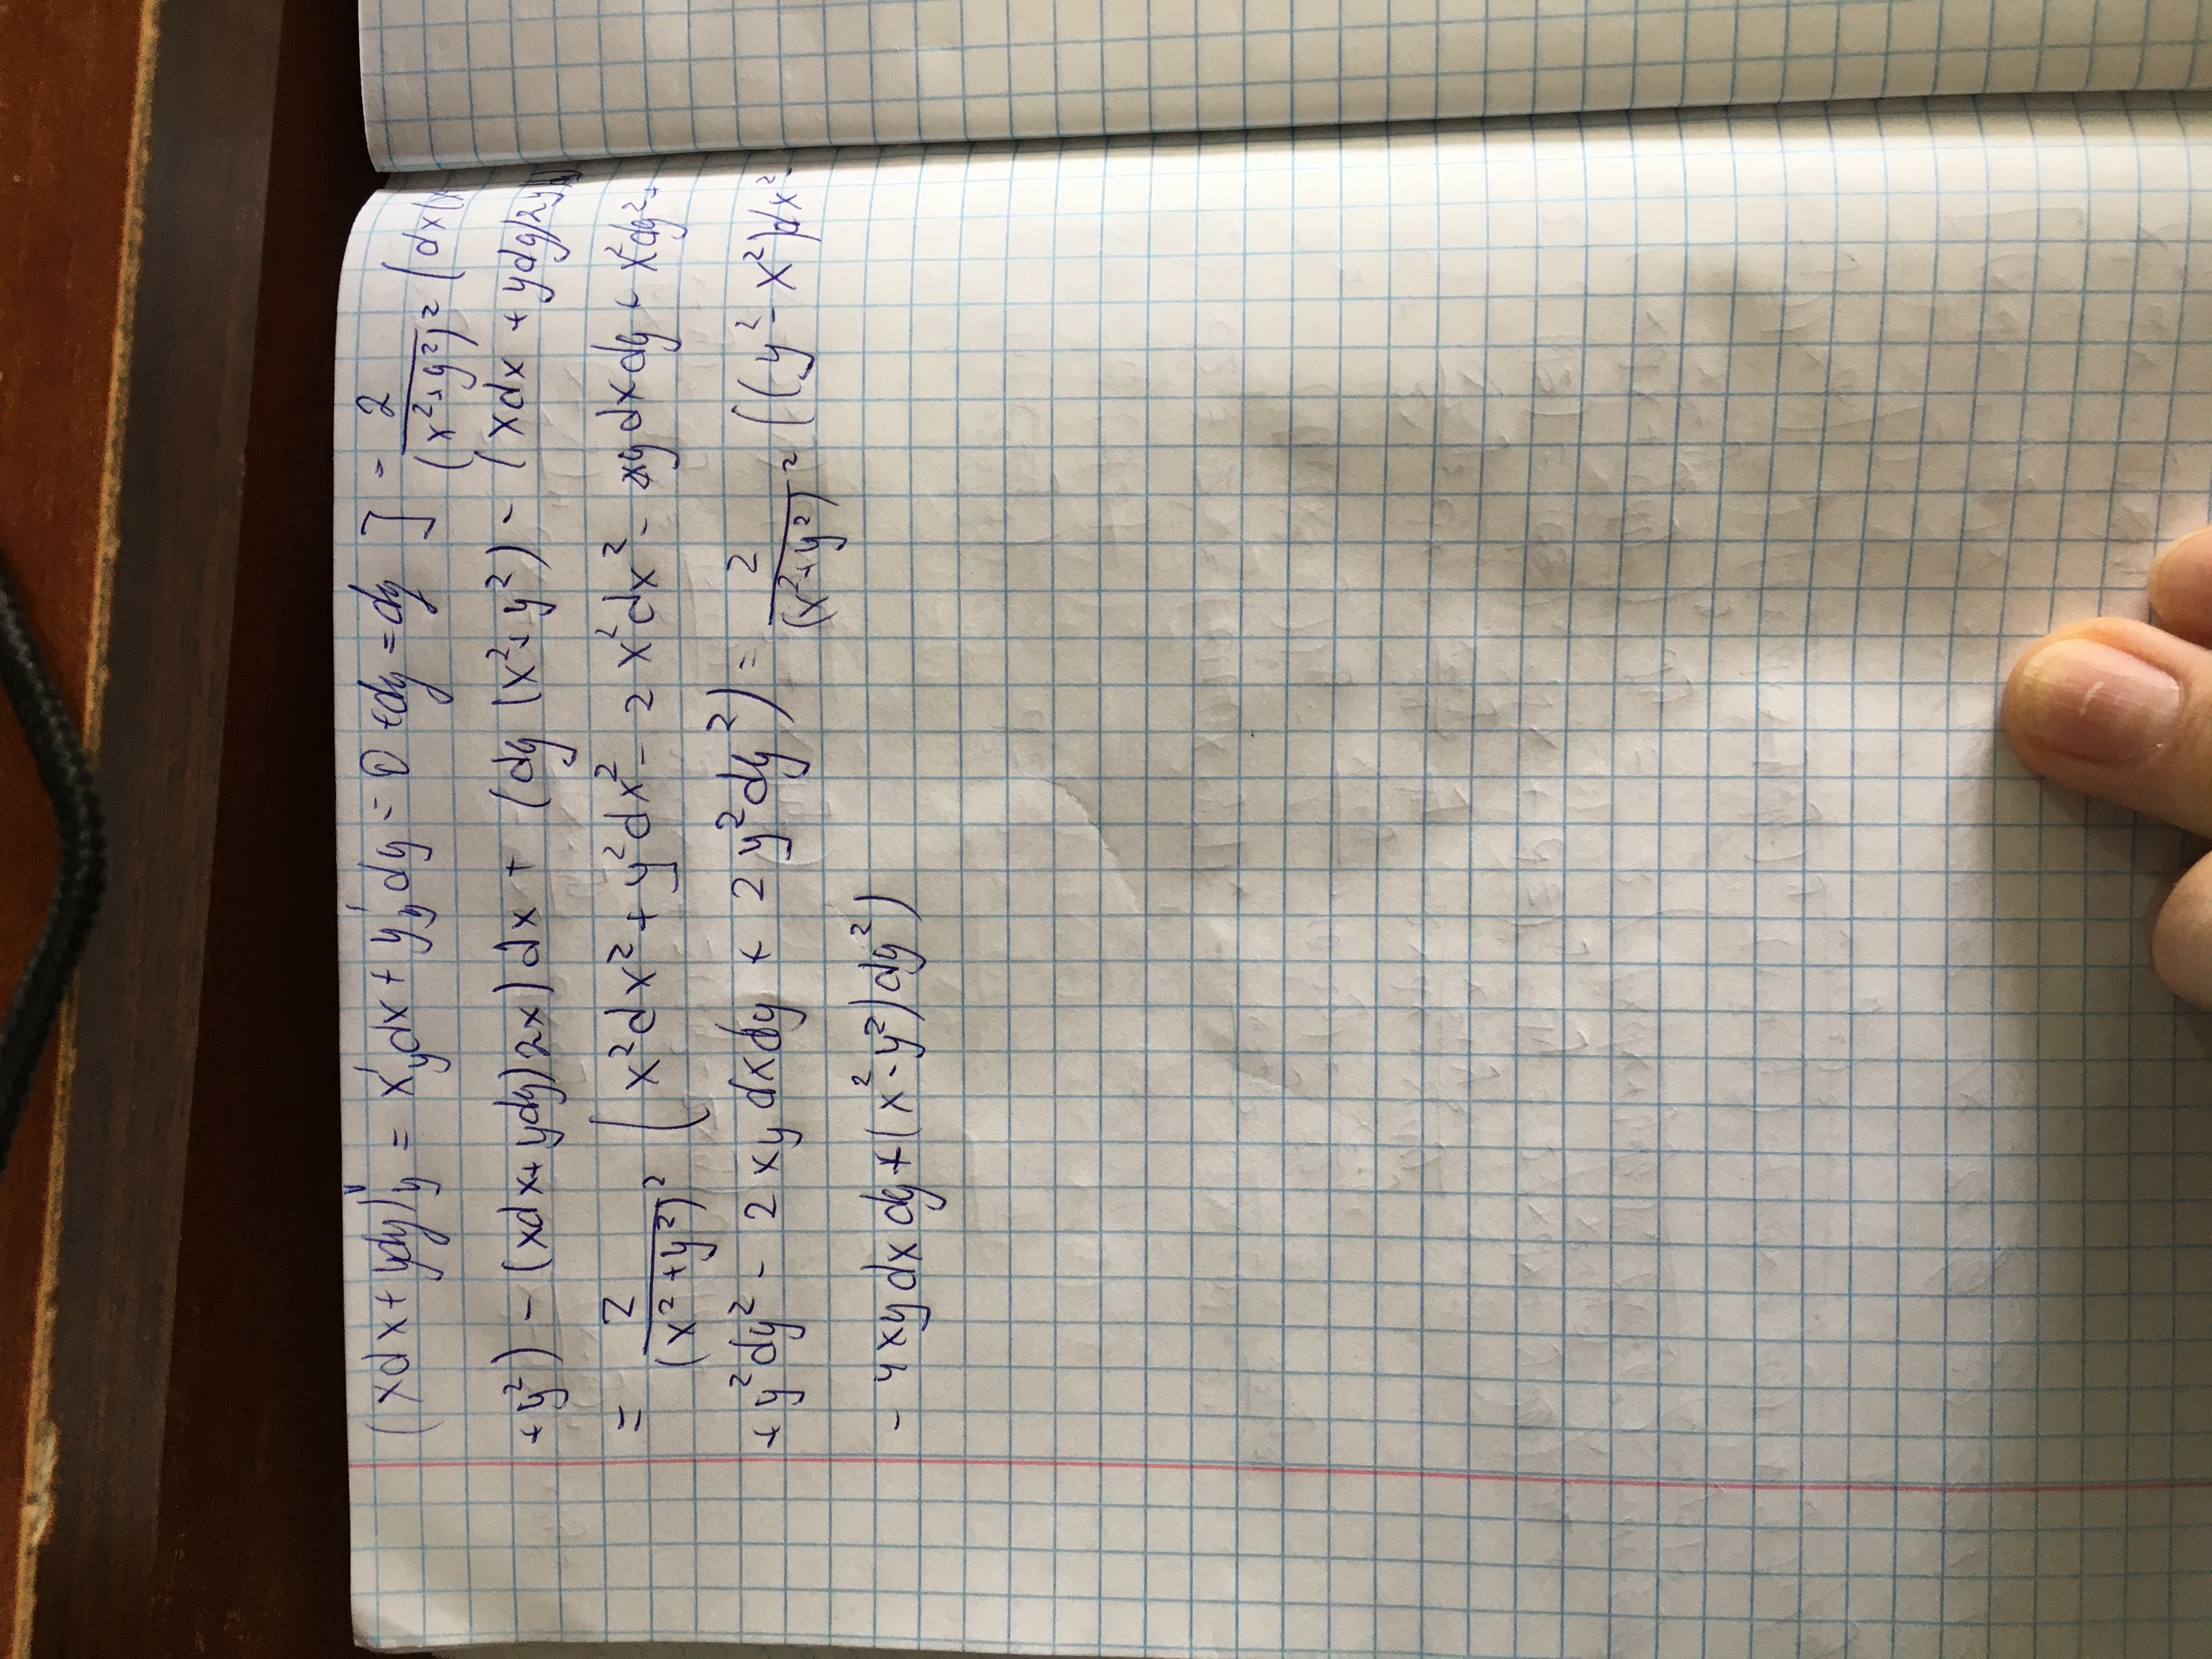 (xdx+ydy)'y = x'y dx + y'y dy = 0 + dy = dy ] = 2/(x²+y²)² (dx(x
+y²) - (xdx+ydy)2x) dx + (dy (x²+y²) - (xdx + ydy)2y
= 2/(x²+y²)² (x²dx² + y²dx² - 2x²dx² - 2xy dx dy + x²dy² +
+ y²dy² - 2xy dxdy + 2y²dy²) = 2/(x²+y²)² ((y²-x²)dx² -
- 4xy dx dy + (x²-y²)dy²)